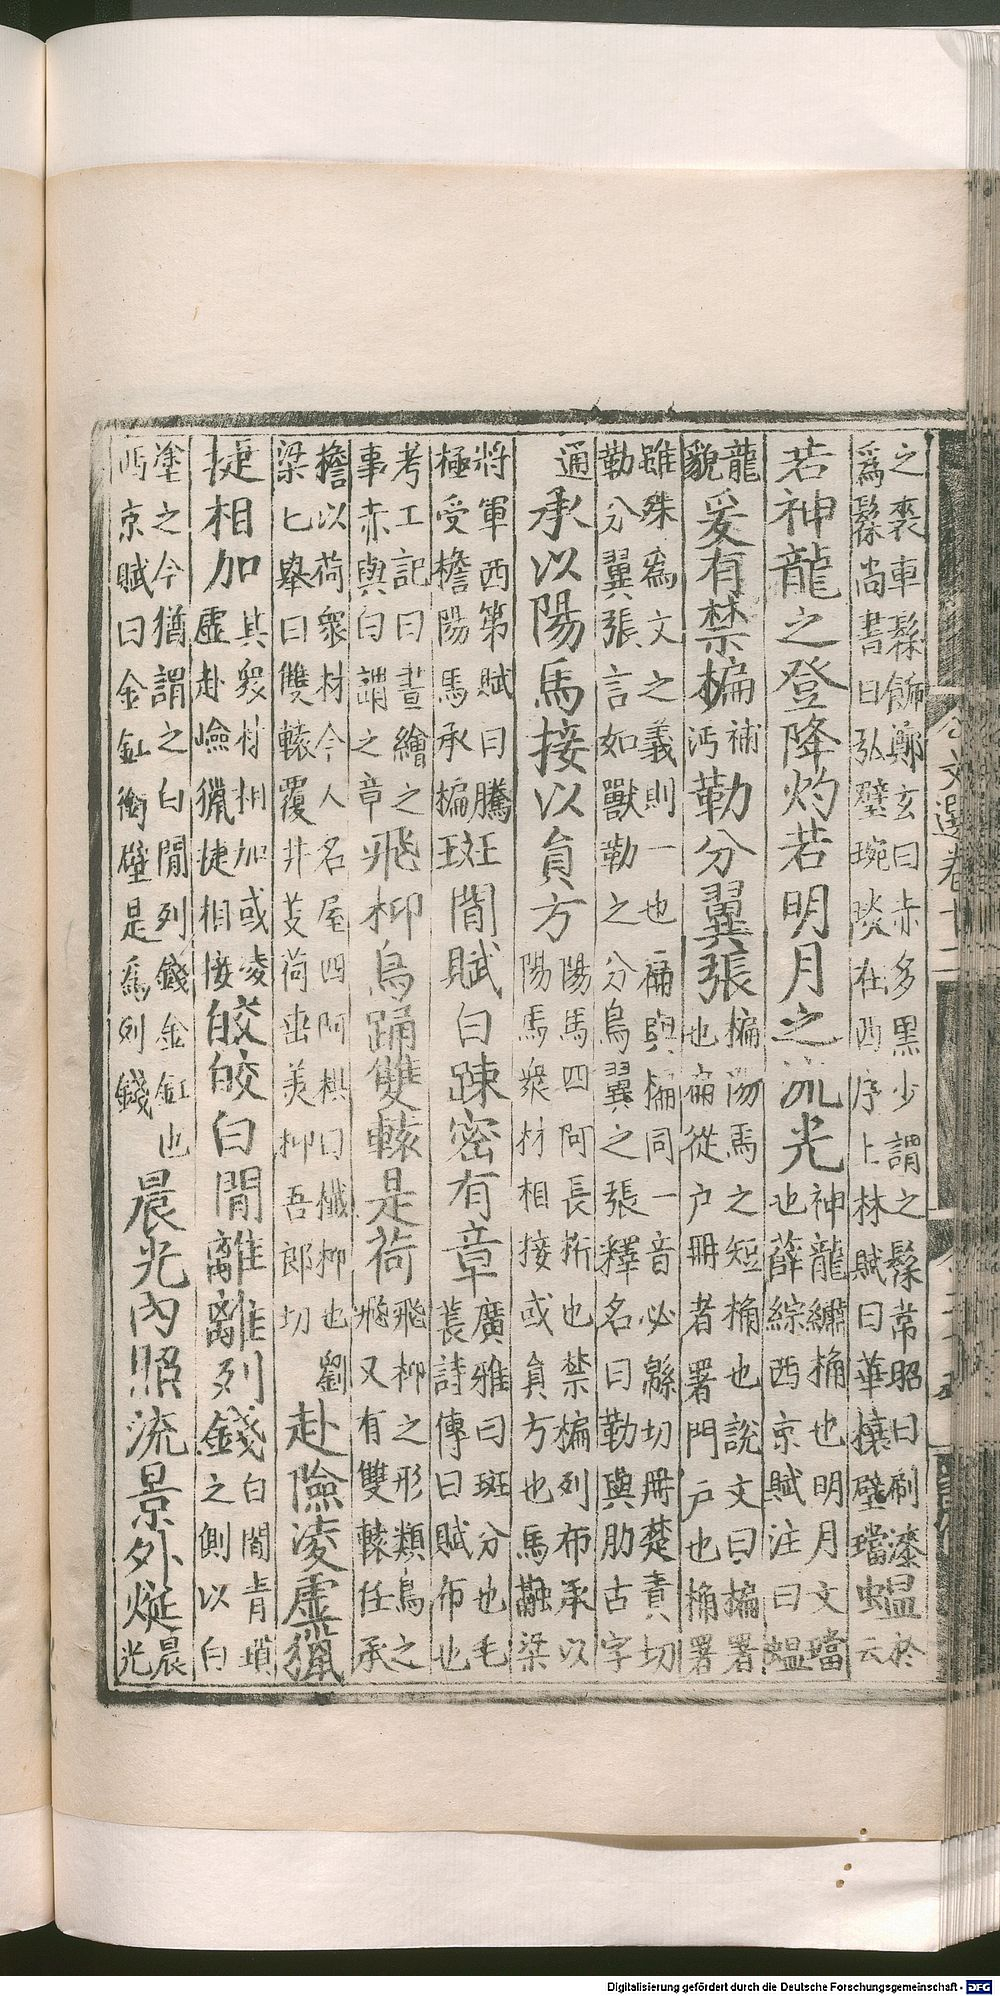 之裘車髹飾鄭玄曰赤多黑少謂之髹韋昭曰刷漆蝹於
為髹尚書曰弘璧琬琰在西序上林賦曰華榱璧璫虫云
若神龍之登降灼若明月之流光
神龍繡桷也明月文璫
也薛綜西京賦注曰蝹
龍
貌
爰有禁楄
補
沔
勒分翼張
楄陽馬之短桷也說文曰楄署
也扁從户冊者署門户也桷署
雖殊為文之義則一也褊與楄同一音必緜切冊楚責切
勒分翼張言如獸勒之分鳥翼之張釋名曰勒與肋古字
通
承以陽馬接以員方
陽馬四阿長桁也禁楄列布承以
陽馬衆材相接或員方也馬融梁
將軍西第賦曰騰
極受檐陽馬承楄
斑間賦白踈密有章
廣雅曰斑分也毛
萇詩傳曰賦布也
考工記曰畫繪之
事赤與白謂之章
飛枊鳥踊雙轅是荷
飛枊之形類鳥之
飛又有雙轅任承
檐以荷衆材今人名屋四阿栱曰櫼枊也劉
梁七舉曰雙轅覆井芰荷垂美枊吾郎切
赴險凌虛獵
捷相加
其衆材相加或凌
虛赴嶮獵捷相接
皎皎白間離離列錢
白間青瑣
之側以白
塗之今猶謂之白間列錢金釭也
西京賦曰金釭銜璧是爲列錢
晨光內照流景外烻
晨
光
文選卷十一
Digitalisierung gefördert durch die Deutsche Forschungsgemeinschaft - DFG